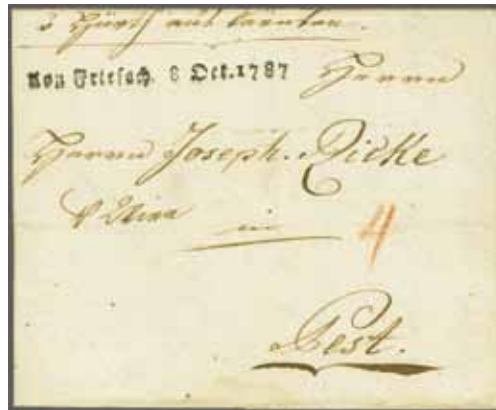 v Hürth aus Kärnten.
Von Friesach. 8 Oct. 1787 Herrn
Herrn Joseph Dicke
p Wien
in 4
Pest.